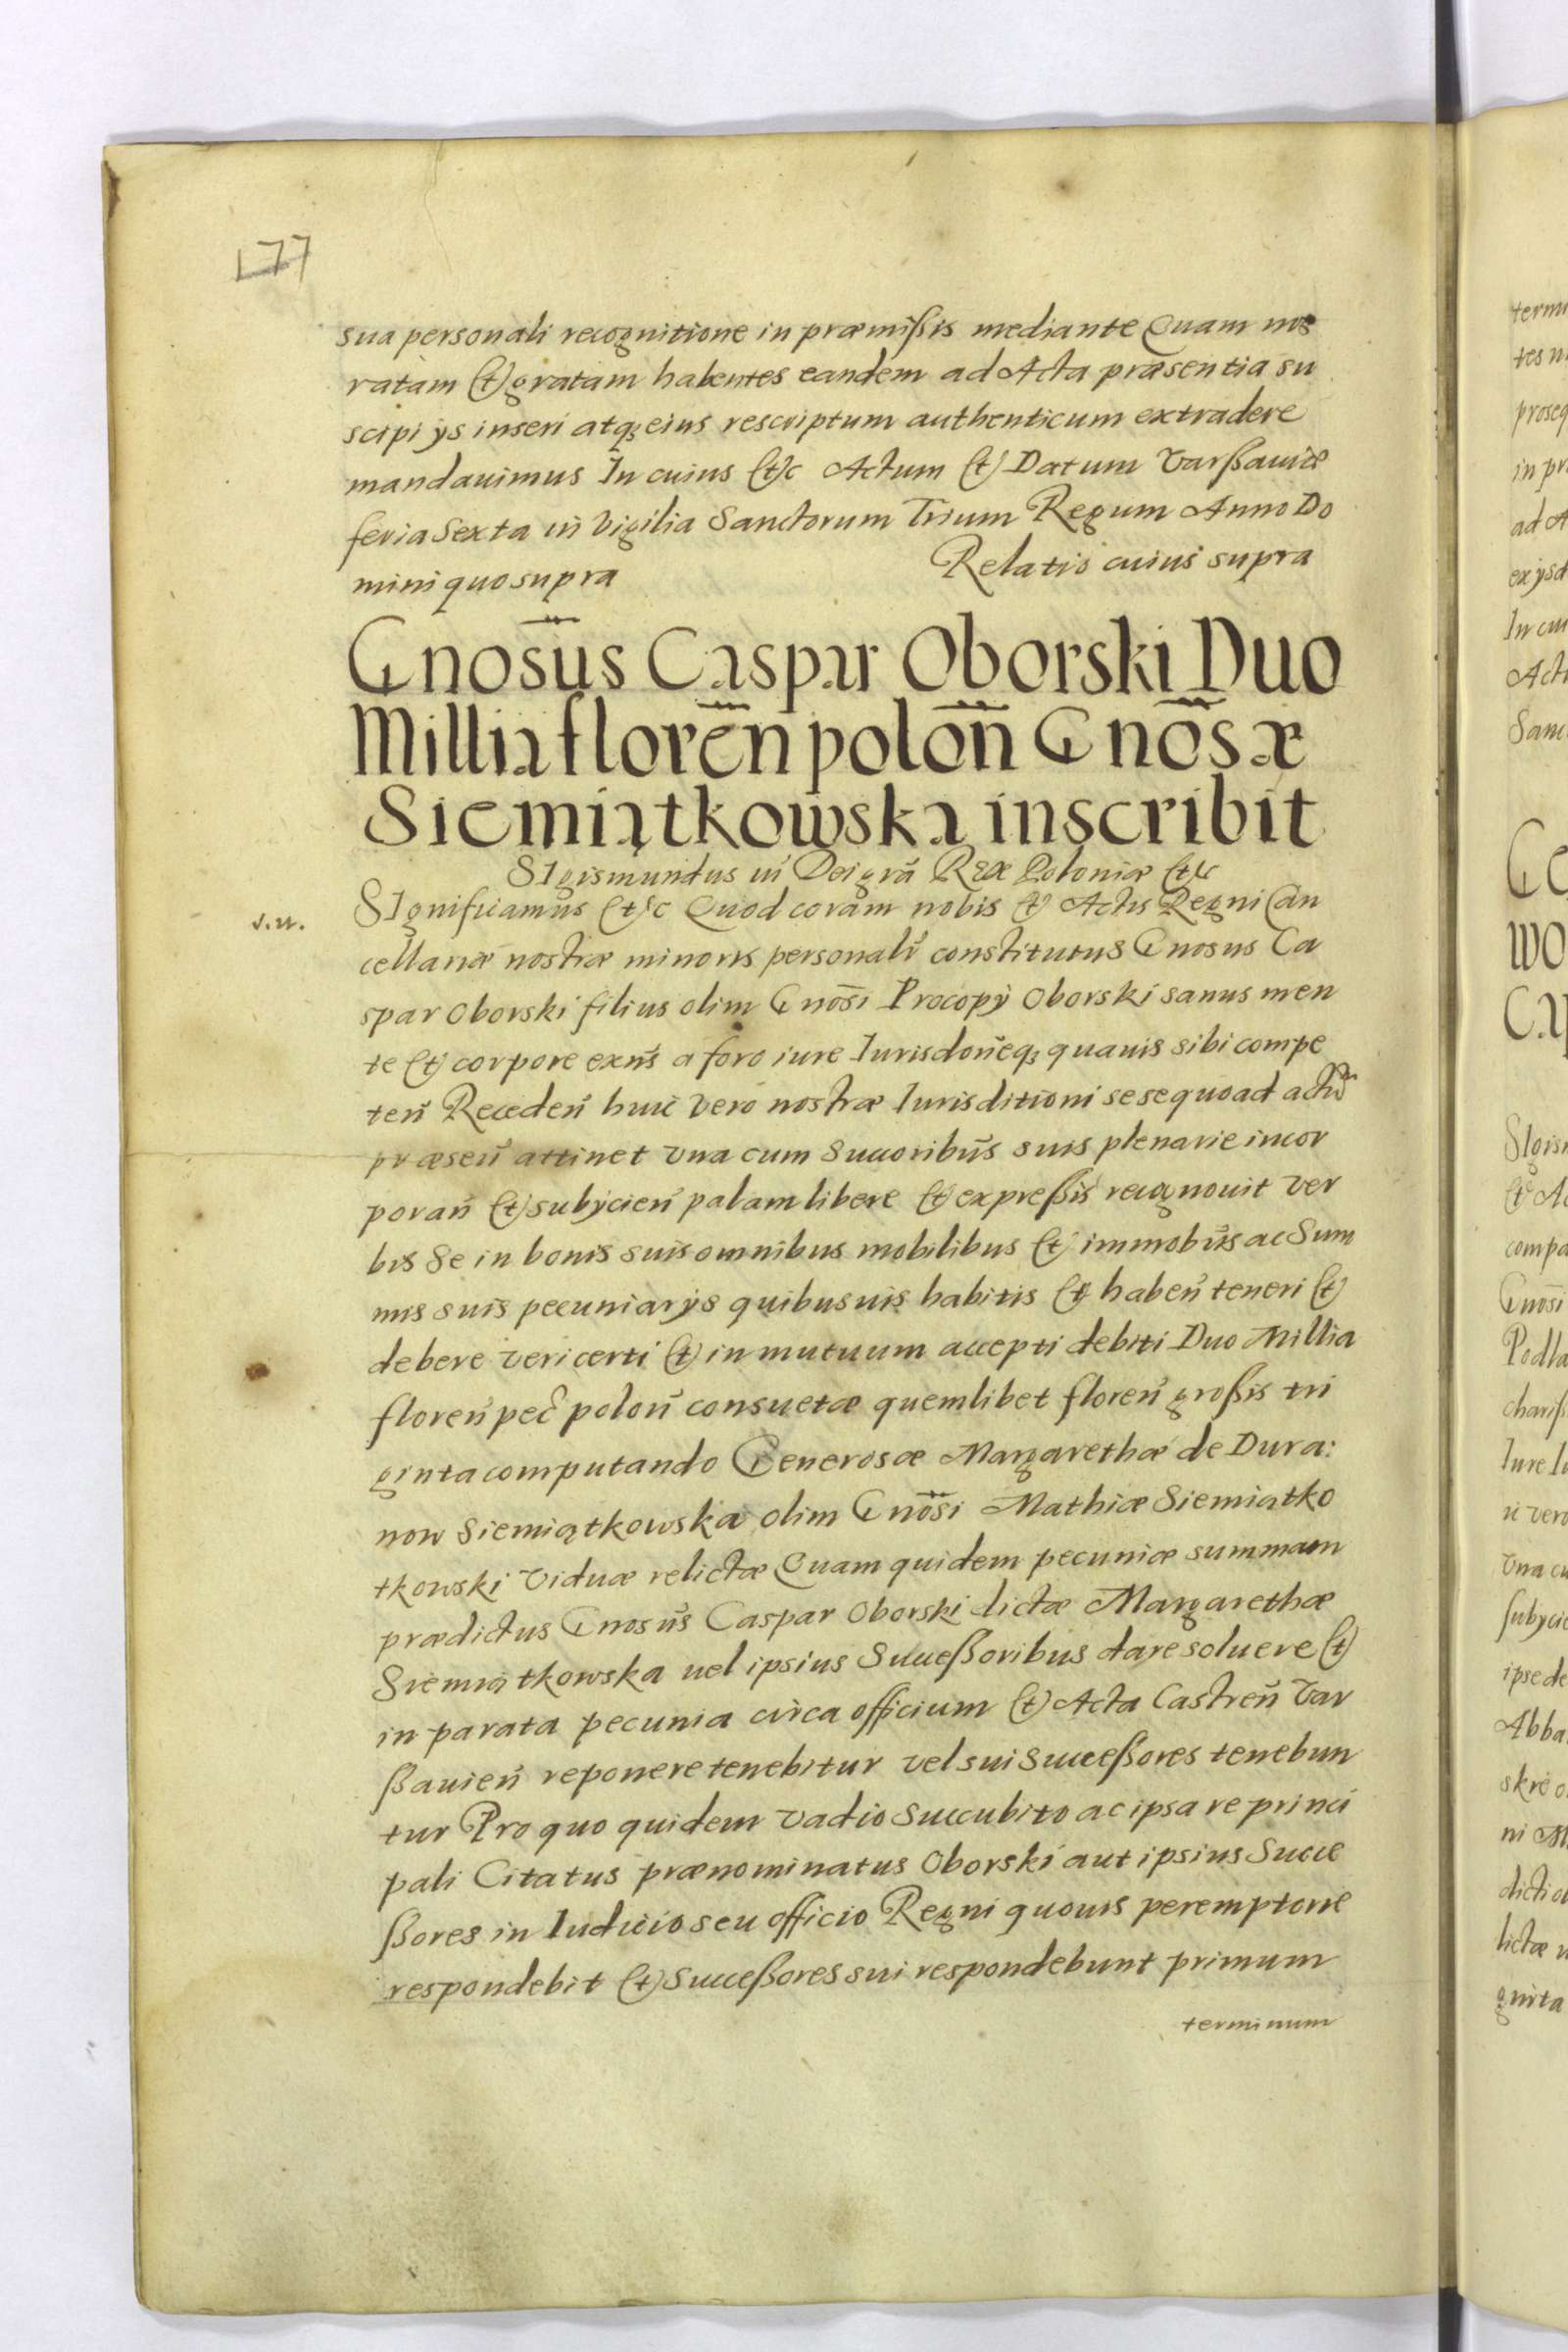 177
sua personali recognitione in præmißis mediante Quam nos
ratam et gratam habentes eandem ad Acta præsentia su
scipi ÿs inseri atq₃ eius rescriptum authenticum extradere
mandauimus In cuius etc Actum et Datum Varßauiæ
feria Sexta in Vigilia Sanctorum Trium Regum Anno Do
mini quo supra Relatio cuius supra
Gnosũs Caspar Oborski Duo
Millia floreñ poloñ Gnõsæ
Siemiątkowska inscribit
SIgismundus iii Dei grã Rex Poloniæ etc
SIgnificamus etc Quod coram nobis et Actis Regni Can
cellariæ nostræ minoris personalr̃ constitutus Gnosus Ca
spar Oborski filius olim Gnõsi Procopÿ Oborski sanus men
te et corpore exñs a foro iure Iurisdoñeq₃ quauis sibi compe
teñ Recedeñ huic vero nostræ Iurisditioni sese quoad actũ
præseñ attinet vna cum Succoribũs suis plenarie incor
porañ et subÿcieñ palam libere et expreßis recognouit ver
bis Se in bonis suis omnibus mobilibus et immobũs ac Sum
mis suis pecuniarÿs quibusuis habitis et habeñ teneri et
debere veri certi et in mutuum accepti debiti Duo Millia
floreñ pec̃ poloñ consuetæ quemlibet floreñ großis tri
ginta computando Generosæ Margarethæ de Dura:
now Siemiątkowska olim Gnõsi Mathiæ Siemiatko
tkowski Viduæ relictæ Quam quidem pecuniæ summam
prædictus Gnosũs Caspar Oborski dictæ Margarethæ
Siemiątkowska uel ipsius Succeßoribus dare soluere et
in parata pecunia circa officium et Acta Castreñ Var
ßauieñ reponere tenebitur vel sui Succeßores tenebun
tur Pro quo quidem vadio Succubito ac ipsa re princi
pali Citatus prænominatus Oborski aut ipsius Succe
ßores in Iudicio seu officio Regni quouis peremptorie
respondebit et Succeßores sui respondebunt primum
terminum